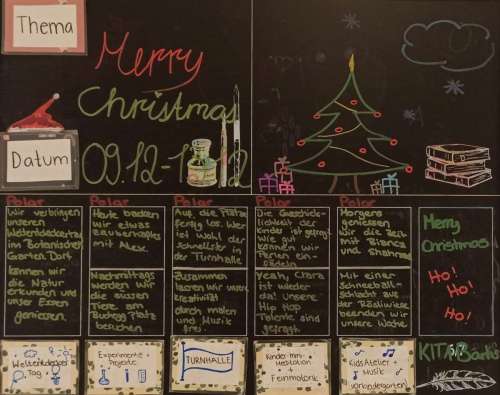 Thema
Merry
Christmas
Datum
09.12-1
Polar
Polar
Polar
Polar
Polar
Wir verbringen
unseren
im Botanischen
Garten Dort
können wir
die Natur
erkunden und
unser Essen
geniessen.
Heute backen
wir etwas
zauberhaftes
mit Alex.
Nachmittags
werden wir
die süssen
Tiere am
Bucheggplatz
besuchen
Auf die Plätze
fertig los. Wer
wohl der
schnellste in
der Turnhalle
Zusammen
lassen wir unsere
Kreativität
durch malen
und Musik
frei
Die Geschick-
lichkeit der
Kinder ist gefragt.
Wie gut
können wir
Perlen ein-
fädeln
Yeah, Clara
ist wieder
da! Unsere
Hip Hop
Talente sind
gefragt.
Morgens
geniessen
wir die Zeit
mit Bianca
und
Mit einer
Schneeball-
schlacht auf
der
beenden wir
unsere Woche.
Merry
Christmas
Ho!
Ho!
Ho!
Weltentdecker
Tag
Experimente +
Projekte
TURNHALLE
Kinder mini-
Feinmotorik
KidsAtelier +
Musik
Vorkindergarten
KITA